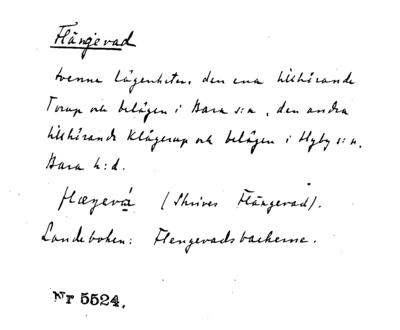 Flängevad
tvenne lägenheter, den ena tillhörande
Torup och belägen i Bara s:n, den andra
tillhörande Klågerup och belägen i Hyby s:n,
Bara h:d.
(Skrives Flängevad).
Landeboken: Flengevadsbackerne.
Nr 5524.